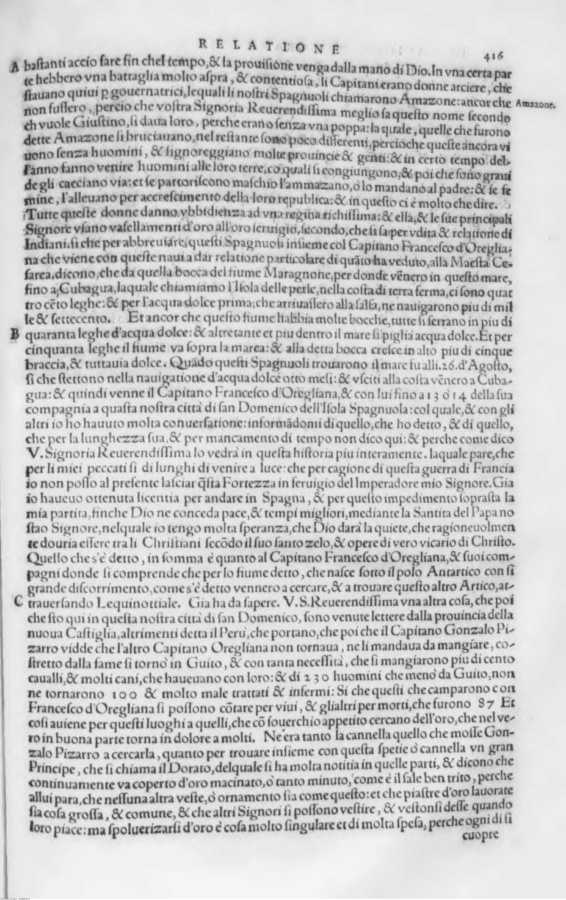 RELATIONE
416
A bastanti accio fare fin chel tempo, & la prouisione venga dalla mano di Dio. In vna certa par
te hebbero vna battaglia molto aspra, & contentiosa, li Capitani erano donne arciere, che
stauano quiui p gouernatrici, le quali li nostri Spagnuoli chiamarono Amazone: ancor che
Amazone.
non fussero, percio che vostra Signoria Reuerendissima meglio sa questo nome secondo
ch vuole Giustino, si daua loro, perche erano senza vna poppa: la quale, quelle che furono
dette Amazone si bruciauano, nel restante sono poco differenti, percioche queste ancora vi
uono senza huomini, & signoreggiano molte prouincie & genti: & in certo tempo del-
l'anno fanno venire huomini alle loro terre, co quali si congiungono, & poi che sono graui
de gli cacciano via: et se partoriscono maschio l'ammazano, o lo mandano al padre: & se fe
mine, l'alleuano per accrescimento della loro republica: & in questo ci è molto che dire.
Tutte queste donne danno vbbidienza ad vna regina richissima: & ella, & le sue principali
Signore vsano vasellamenti d'oro all'oro seruigio, secondo, che si sa per vdita & relatione di
Indiani. si che per abbreuiare, questi Spagnuoli insieme col Capitano Francesco d'Oreglia-
na che viene con queste naui a dar relatione particolare di quãto ha veduto, alla Maesta Ce-
sarea, dicono, che da quella bocca del fiume Maragnone, per donde vẽnero in questo mare,
fino a Cubagua, laquale chiamiamo l'Isola delle perle, nella costa di terra ferma, ci sono quat
tro cẽto leghe: & per l'acqua dolce prima, che arriuassero alla salsa, ne nauigarono piu di mil
le & settecento. Et ancor che questo fiume habbia molte bocche, tutte si serrano in piu di
B quaranta leghe d'acqua dolce: & altretante et piu dentro il mare si piglia acqua dolce. Et per
cinquanta leghe il fiume va sopra la marea: & alla detta bocca cresce in alto piu di cinque
braccia, & tuttauia dolce. Quãdo questi Spagnuoli trouarono il mare fu alli. 26. d'Agosto,
si che stettono nella nauigatione d'acqua dolce otto mesi: & vsciti alla costa vẽnero a Cuba-
gua: & quindi venne il Capitano Francesco d'Oregliana, & con lui fino a 13 o 14 della sua
compagnia a quasta nostra città di san Domenico dell'Isola Spagnuola: col quale, & con gli
altri io ho hauuto molta conuersatione: informãdomi di quello, che ho detto, & di quello,
che per la lunghezza sua, & per mancamento di tempo non dico qui: & perche come dico
V. Signoria Reuerendissima lo vedrà in questa historia piu interamente. laquale pare, che
per li miei peccati si dilunghi di venire a luce: che per cagione di questa guerra di Francia
io non posso al presente lasciar q̃sta Fortezza in seruigio del Imperadore mio Signore. Gia
io haueuo ottenuta licentia per andare in Spagna, & per questo impedimento soprasta la
mia partita, finche Dio ne conceda pace, & tempi migliori, mediante la Santità del Papa no
stro Signore, nelquale io tengo molta speranza, che Dio darà la quiete, che ragioneuolmen
te douria essere tra li Christiani secõdo il suo santo zelo, & opere di vero vicario di Christo.
Quello che s'è detto, in somma è quanto al Capitano Francesco d'Oregliana, & suoi com-
pagni donde si comprende che per lo fiume detto, che nasce sotto il polo Antartico con sì
grande discorrimento, come s'è detto vennero a cercare, & a trouare questo altro Artico, at-
C trauersando Lequinottiale. Gia ha da sapere. V. S. Reuerendissima vna altra cosa, che poi
che sto qui in questa nostra città di san Domenico, sono venute lettere dalla prouincia della
nuoua Castiglia, altrimenti detta il Perù, che portano, che poi che il Capitano Gonzalo Pi-
zarro vidde che l'altro Capitano Oregliana non tornaua, ne li mandaua da mangiare, co-
stretto dalla fame si tornò in Guito, & con tanta necessità, che si mangiarono piu di cento
caualli, & molti cani, che haueuano con loro: & di 230 huomini che menò da Guito, non
ne tornarono 100 & molto male trattati & infermi: Si che questi che camparono con
Francesco d'Oregliana si possono cõtare per viui, & gli altri per morti, che furono 87 Et
cosi auiene per questi luoghi a quelli, che cõ souerchio appetito cercano dell'oro, che nel ve-
ro in buona parte torna in dolore a molti. Ne era tanto la cannella quello che mosse Gon-
zalo Pizarro a cercarla, quanto per trouare insieme con questa spetie o cannella vn gran
Principe, che si chiama il Dorato, delquale si ha molta notitia in quelle parti, & dicono che
continuamente va coperto d'oro macinato, o tanto minuto, come è il sale ben trito, perche
allui para, che nessuna altra veste, o ornamento sia come questo: et che piastre d'oro lauorate
sia cosa grossa, & comune, & che altri Signori si possono vestire, & vestonsi desse quando
loro piace: ma spoluerizarsi d'oro è cosa molto singulare et di molta spesa, perche ogni dì si
cuopre